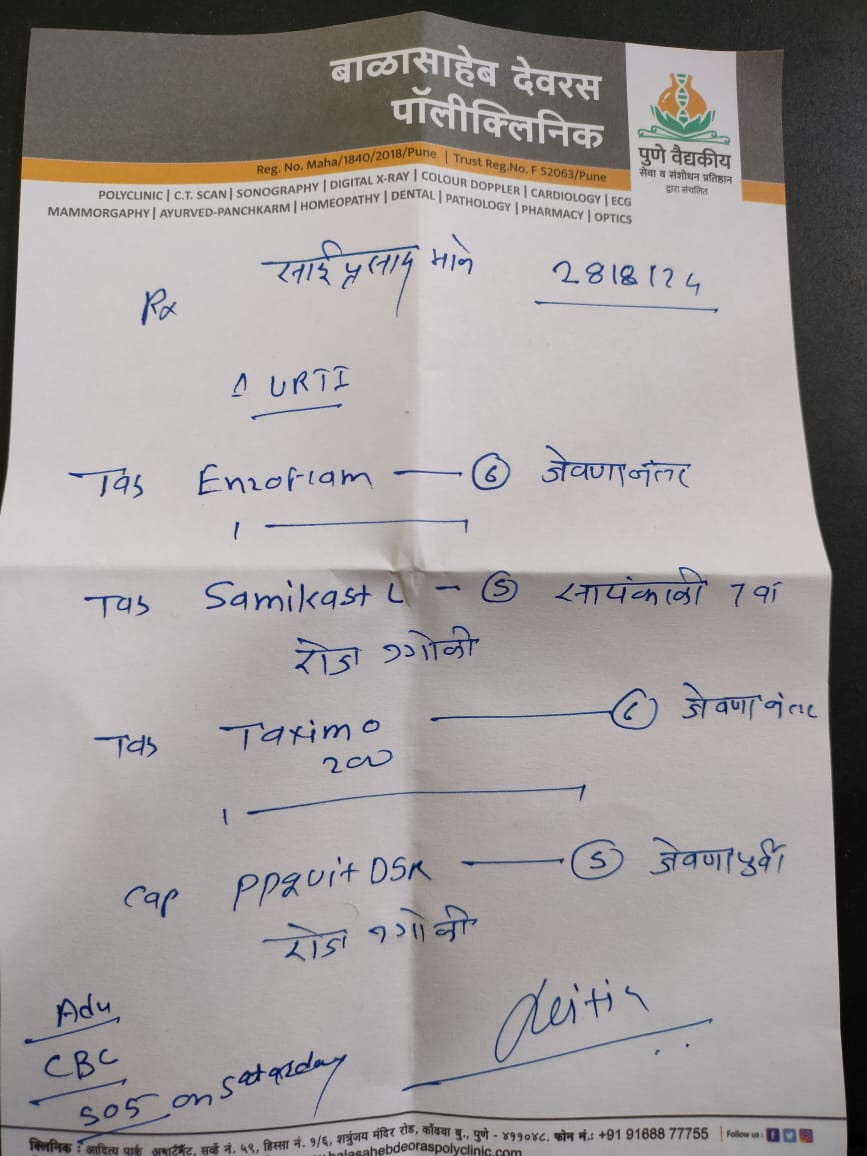 बाळासाहेब देवरस
पॉलीक्लिनिक
पुणे वैद्यकीय
सेवा व संशोधन प्रतिष्ठान
द्वारा संचलित
Reg. No. Maha/1840/2018/Pune | Trust Reg.No. F 52063/Pune
POLYCLINIC | C.T. SCAN | SONOGRAPHY | DIGITAL X-RAY | COLOUR DOPPLER | CARDIOLOGY | ECG
MAMMORGAPHY | AYURVED-PANCHKARM | HOMEOPATHY | DENTAL | PATHOLOGY | PHARMACY | OPTICS
साई प्रसाद माने
28/8/24
Rx
Δ URTI
Tab Enzoflam — 6 जेवणानंतर
1 — 1
Tab Samikast L - 5 सायंकाळी 7 वा
रोज १ गोळी
Tab Taxim O — 6 जेवणानंतर
200
1 — 1
Cap PPQuit DSR — 5 जेवणापुर्वी
रोज १ गोळी
Adv
CBC
SOS on Saturday
क्लिनिक : आदित्य पार्क अपार्टमेंट, सर्व्हे नं. ५९, हिस्सा नं. १/६, शत्रुंजय मंदिर रोड, कोंढवा बु., पुणे - ४११०४८. फोन नं.: +91 91688 77755 | Follow us :
balasahebdeoraspolyclinic.com